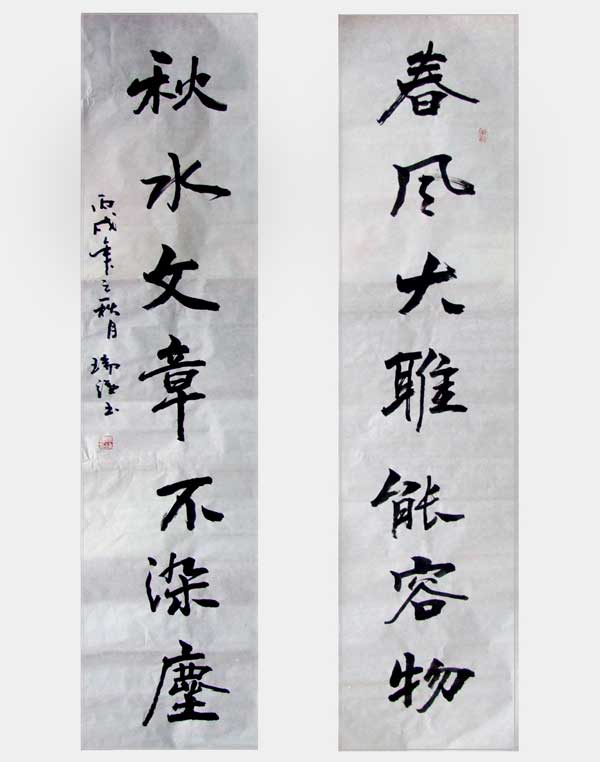 春风大雅能容物
秋水文章不染塵
丙戌年之秋月